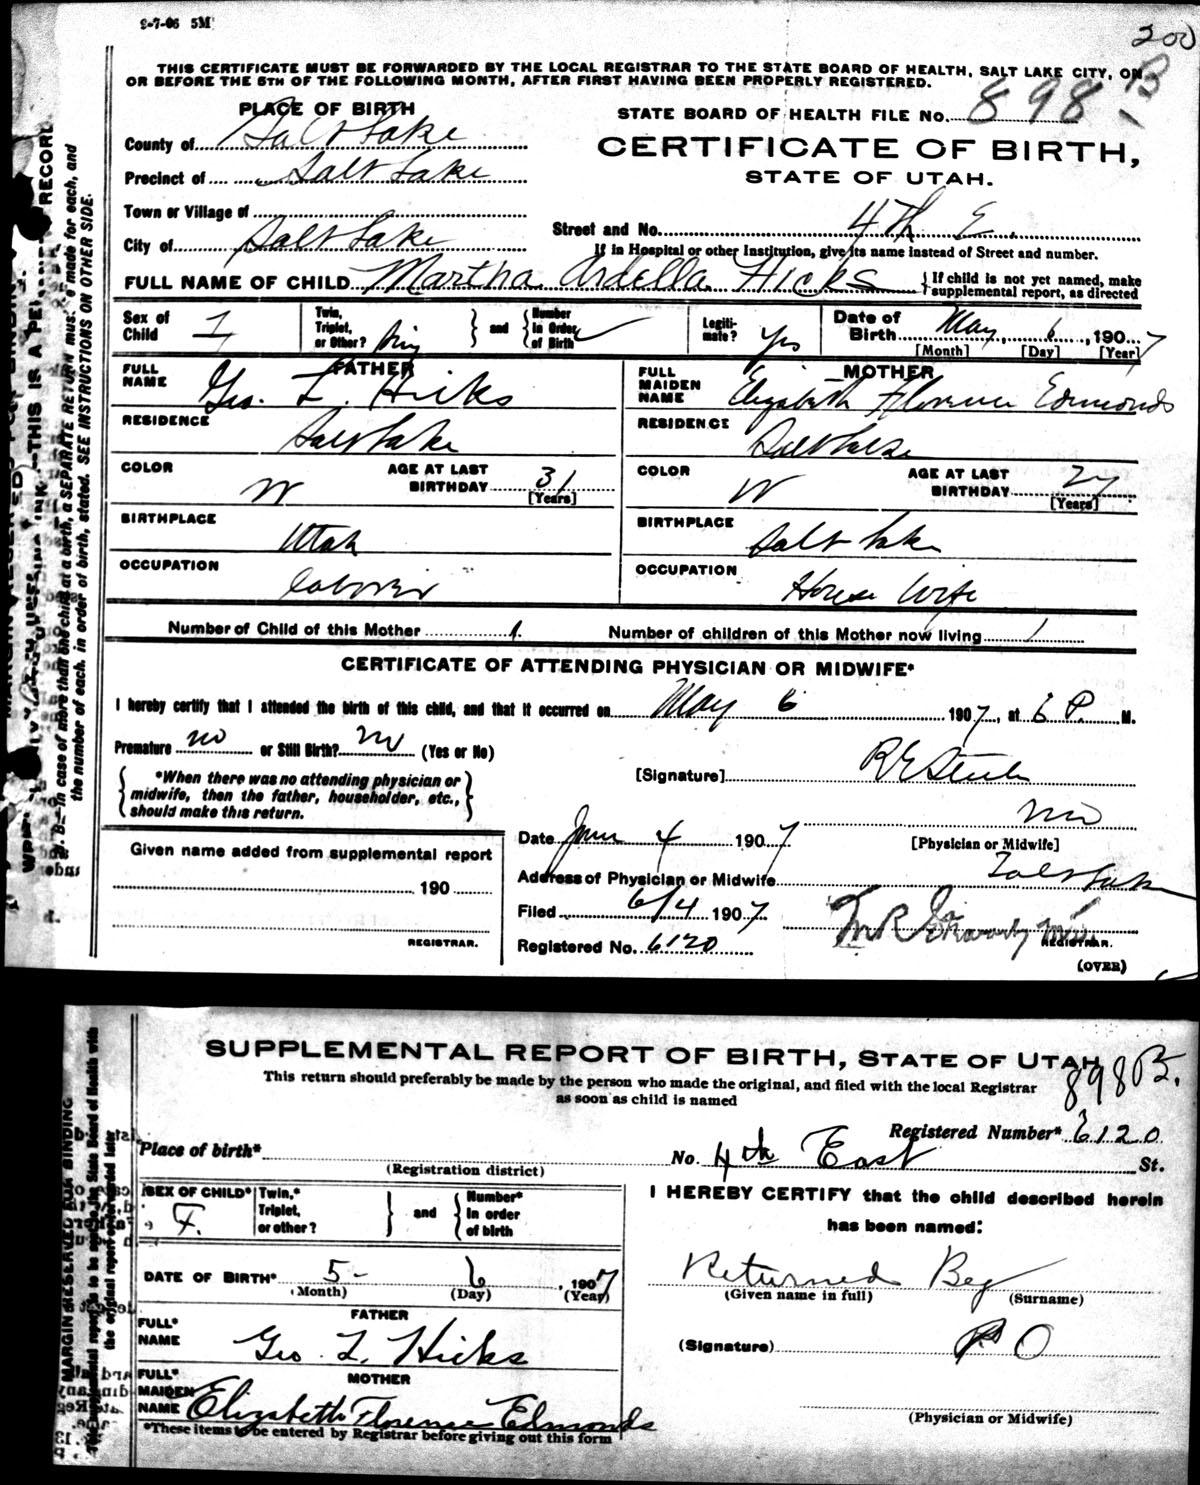 2-7-06 5M
200
THIS CERTIFICATE MUST BE FORWARDED BY THE LOCAL REGISTRAR TO THE STATE BOARD OF HEALTH, SALT LAKE CITY, ON
OR BEFORE THE 5TH OF THE FOLLOWING MONTH, AFTER FIRST HAVING BEEN PROPERLY REGISTERED.
PLACE OF BIRTH
STATE BOARD OF HEALTH FILE No. 898 B
County of Salt Lake
CERTIFICATE OF BIRTH,
Precinct of Salt Lake
STATE OF UTAH.
Town or Village of
Street and No. 4th E.
City of Salt Lake
If in Hospital or other Institution, give its name instead of Street and number.
FULL NAME OF CHILD Martha Ardella Hicks
If child is not yet named, make
supplemental report, as directed
Sex of Child
Twin, Triplet, or Other?
and
Number in Order of Birth
Legiti-mate? Yes
Date of Birth May 6, 1907
[Month] [Day] [Year]
FATHER
FULL NAME Geo. L. Hicks
RESIDENCE Salt Lake
COLOR W
AGE AT LAST BIRTHDAY 31
[Years]
BIRTHPLACE Utah
OCCUPATION
MOTHER
FULL MAIDEN NAME Elizabeth Florence Edmonds
RESIDENCE Salt Lake
COLOR W
AGE AT LAST BIRTHDAY
[Years]
BIRTHPLACE Salt Lake
OCCUPATION House Wife
Number of Child of this Mother 1
Number of children of this Mother now living 1
CERTIFICATE OF ATTENDING PHYSICIAN OR MIDWIFE*
I hereby certify that I attended the birth of this child, and that it occurred on May 6 1907, at 6 P. M.
Premature no or Still Birth? no (Yes or No)
*When there was no attending physician or
midwife, then the father, householder, etc.,
should make this return.
[Signature]
[Physician or Midwife]
Date June 4 1907
Address of Physician or Midwife Salt Lake
Filed 6/4 1907
Registered No. 6120
REGISTRAR.
(OVER)
Given name added from supplemental report
190
REGISTRAR.
N. B.—In case of more than one child at a birth, a SEPARATE RETURN must be made for each, and
the number of each, in order of birth, stated. SEE INSTRUCTIONS ON OTHER SIDE.
SUPPLEMENTAL REPORT OF BIRTH, STATE OF UTAH
898 B.
This return should preferably be made by the person who made the original, and filed with the local Registrar
as soon as child is named
Registered Number* 6120
Place of birth*
(Registration district)
No. 4th East St.
SEX OF CHILD* F.
Twin,* Triplet, or other?
and
Number* in order of birth
DATE OF BIRTH* 5- 6, 1907
(Month) (Day) (Year)
FATHER
FULL* NAME Geo. L. Hicks
MOTHER
FULL* MAIDEN NAME Elizabeth Florence Edmonds
*These items to be entered by Registrar before giving out this form
I HEREBY CERTIFY that the child described herein
has been named:
Returned Beg
(Given name in full) (Surname)
(Signature) P O
(Physician or Midwife)
MARGIN RESERVED FOR BINDING